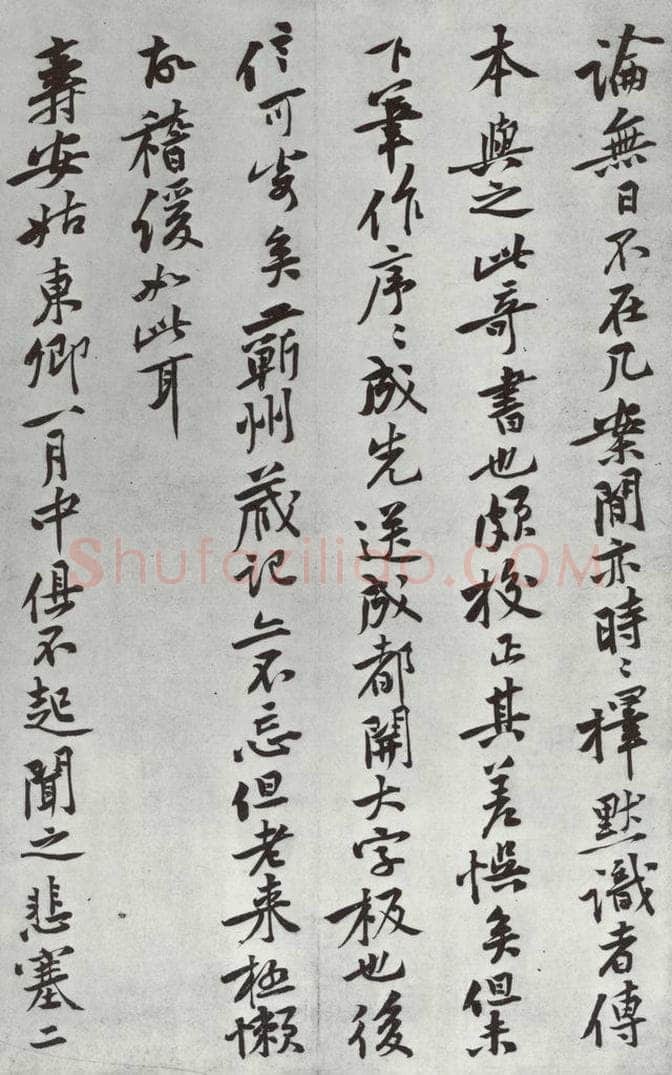 論無日不在几案間亦時〻擇默識者傳
本與之此奇書也頗校正其差悮矣但未
下筆作序〻成先送成都開大字板也後
信可寄矣蘄州藏記亦不忘但老来極懶
故稽緩如此耳
壽安姑東卿一月中俱不起聞之悲塞二
Shufaziliao.COM